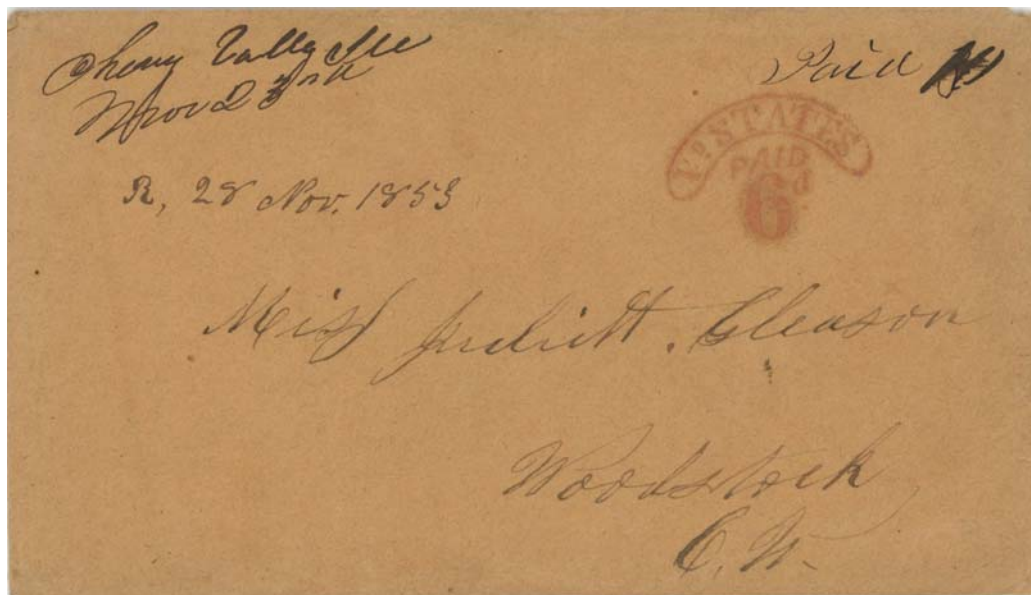 Cherry Vally Ills
Nov 23rd
Paid 10
Us STATES
PAID
6d
R, 28 Nov. 1853
Miss Gleason
Woodstock
C.W.